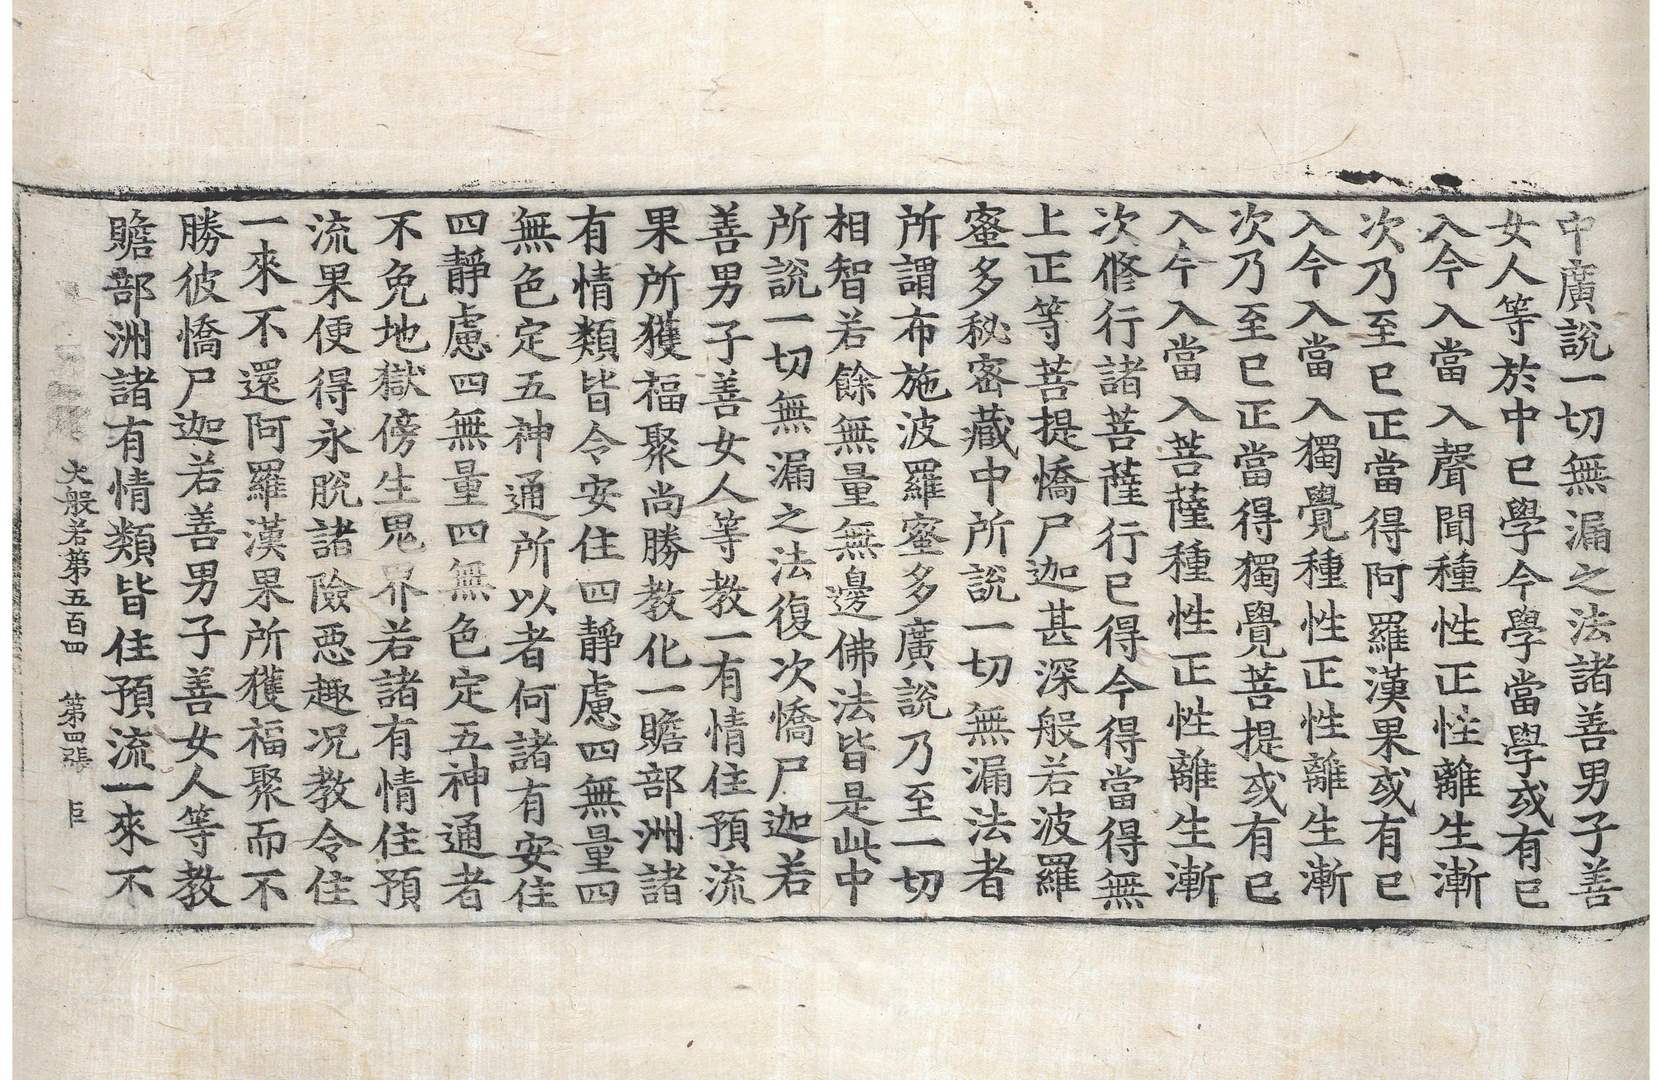 中廣說一切無漏之法諸善男子善
女人等於中已學今學當學或有已
入今入當入聲聞種性正性離生漸
次乃至已正當得阿羅漢果或有已
入今入當入獨覺種性正性離生漸
次乃至已正當得獨覺菩提或有已
入今入當入菩薩種性正性離生漸
次修行諸菩薩行已得今得當得無
上正等菩提憍尸迦甚深般若波羅
蜜多秘密藏中所說一切無漏法者
所謂布施波羅蜜多廣說乃至一切
相智若餘無量無邊佛法皆是此中
所說一切無漏之法復次憍尸迦若
善男子善女人等教一有情住預流
果所獲福聚尚勝教化一贍部洲諸
有情類皆令安住四靜慮四無量四
無色定五神通所以者何諸有安住
四靜慮四無量四無色定五神通者
不免地獄傍生鬼界若諸有情住預
流果便得永脫諸險惡趣况教令住
一來不還阿羅漢果所獲福聚而不
勝彼憍尸迦若善男子善女人等教
贍部洲諸有情類皆住預流一來不
大般若第五百四 第四張 臣